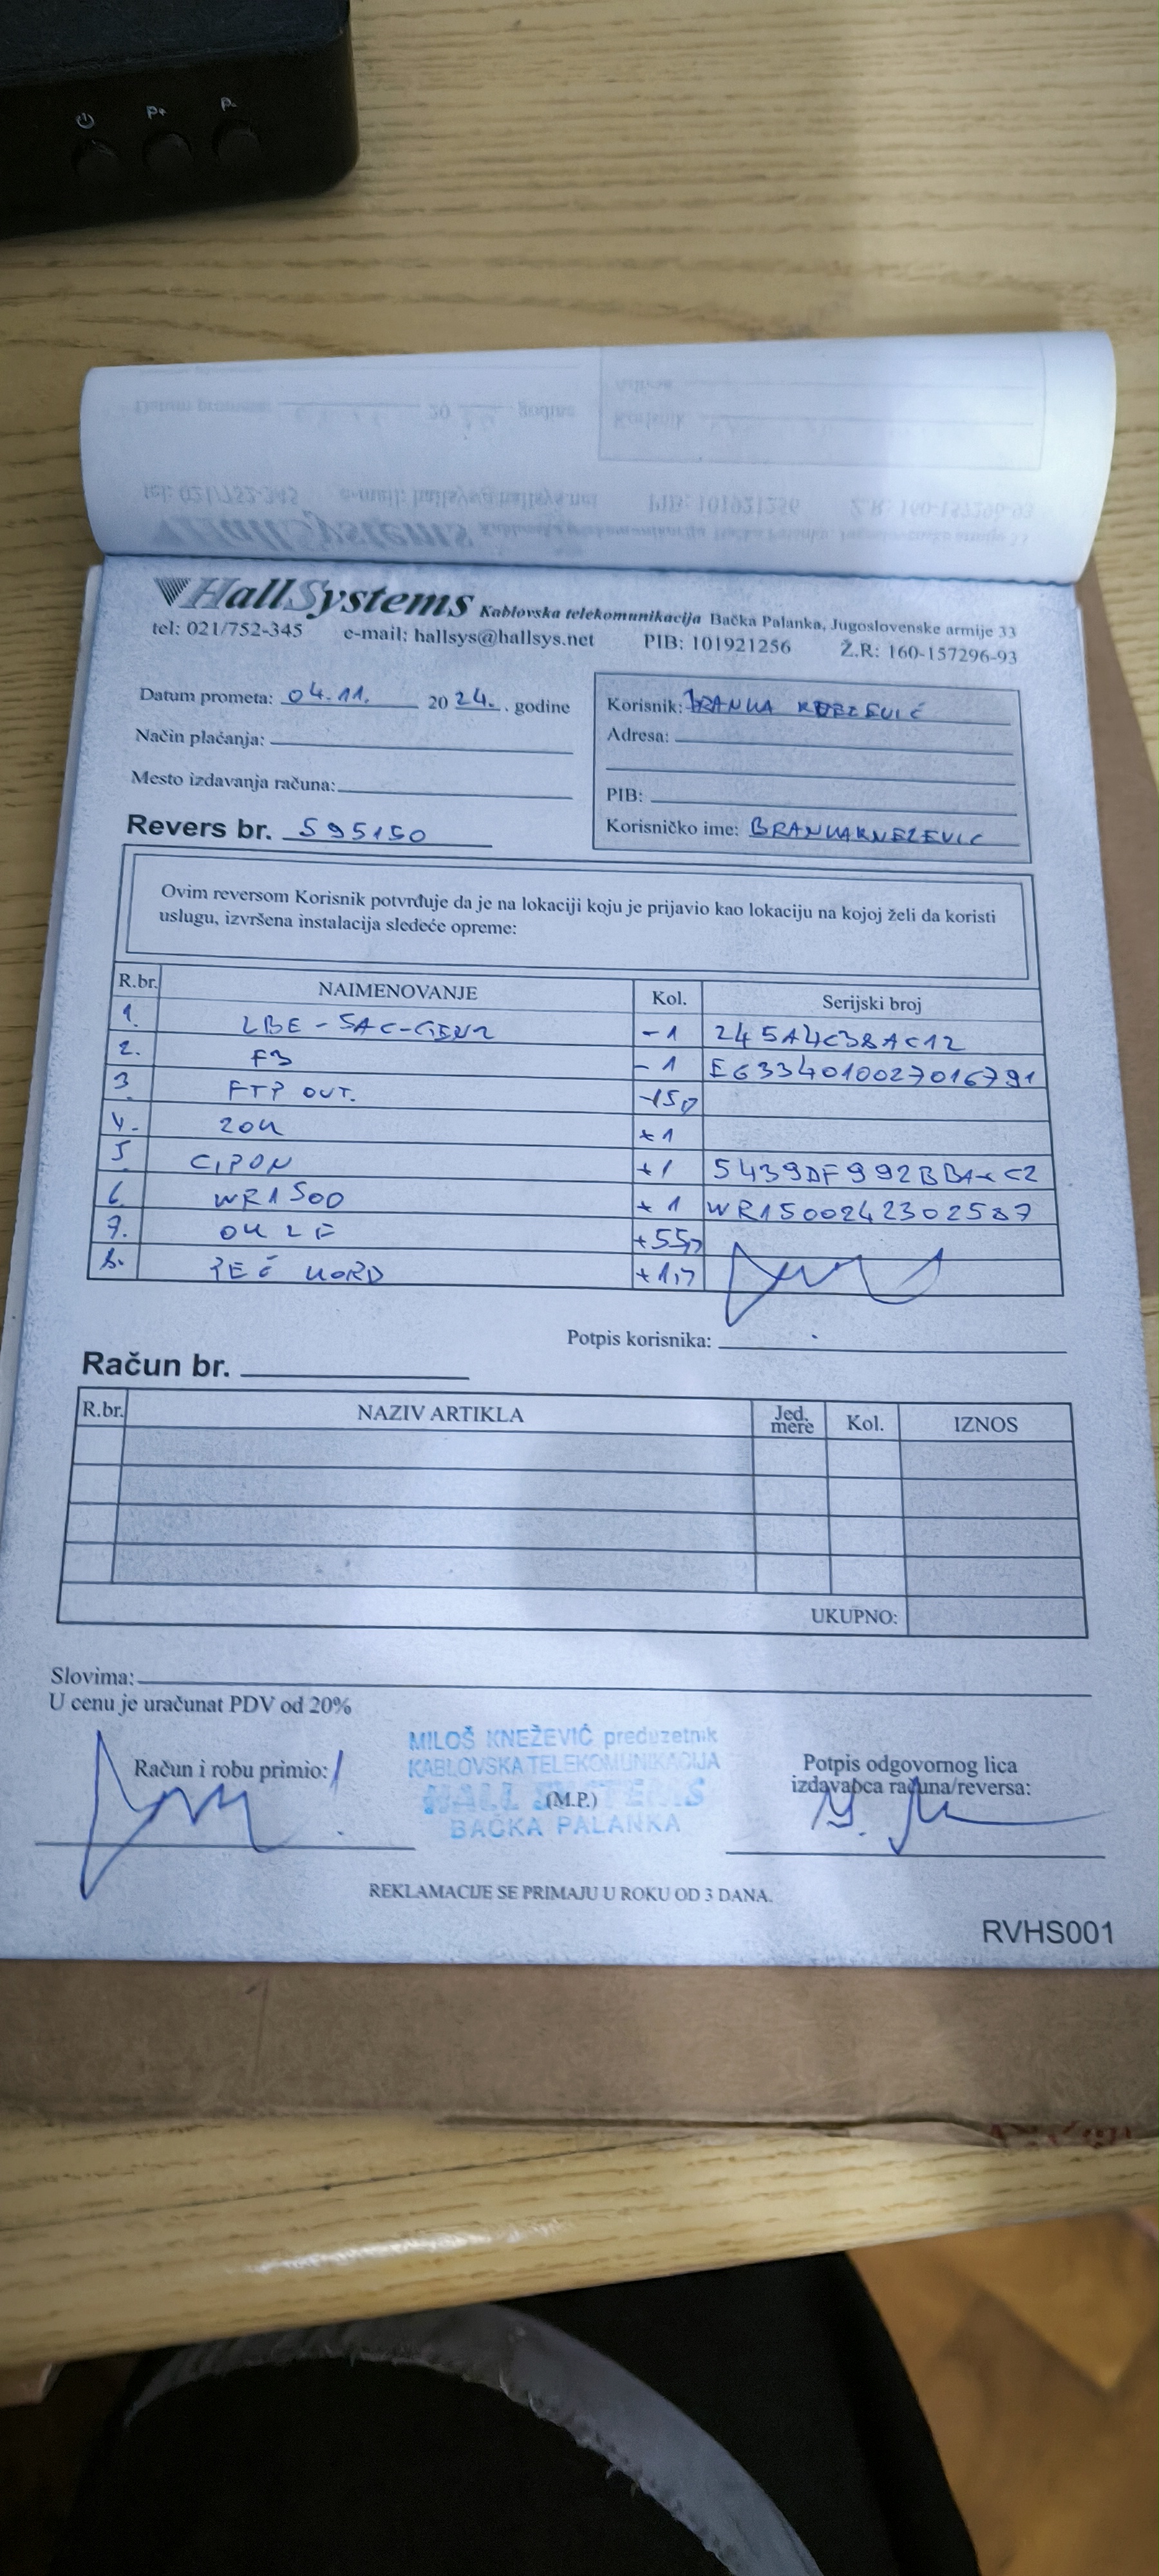 P+ P-
HallSystems Kablovska telekomunikacija Bačka Palanka, Jugoslovenske armije 33
tel: 021/752-345 e-mail: hallsys@hallsys.net PIB: 101921256 Ž.R: 160-157296-93
Datum prometa: 04.11. 2024. . godine
Način plaćanja:
Mesto izdavanja računa:
Revers br. 595150
Korisnik: BRANKA
Adresa:
PIB:
Korisničko ime: BRANKAKNEZEVIC
Ovim reversom Korisnik potvrđuje da je na lokaciji koju je prijavio kao lokaciju na kojoj želi da koristi
uslugu, izvršena instalacija sledeće opreme:
R.br. NAIMENOVANJE Kol. Serijski broj
1. LBE-5AC-GEN2 -1 245A4C38AC12
2. F3 -1 EG334010027016791
3 FTP OUT.
4. ZOK +1
5. CIPON +1
6. WR1500 +1 WR1500242302587
7.
8.
Potpis korisnika:
Račun br.
R.br. NAZIV ARTIKLA Jed. mere Kol. IZNOS
UKUPNO:
Slovima:
U cenu je uračunat PDV od 20%
Račun i robu primio:
MILOŠ KNEŽEVIĆ preduzetnik
KABLOVSKA TELEKOMUNIKACIJA
HALL SYSTEMS
(M.P.)
BAČKA PALANKA
Potpis odgovornog lica
izdavaoca računa/reversa:
REKLAMACIJE SE PRIMAJU U ROKU OD 3 DANA.
RVHS001